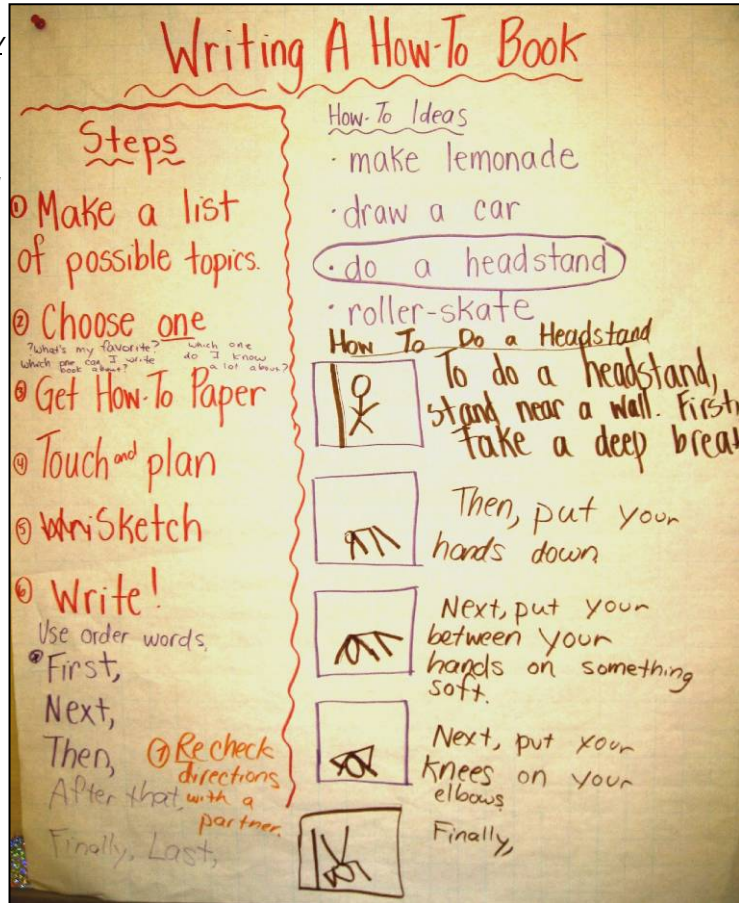 Writing A How-To Book
Steps
① Make a list
of possible topics.
② Choose one
?What's my favorite?
which one can I write
book about?
which one
do I know
a lot about?
③ Get How-To Paper
④ Touch and plan
⑤ Sketch
⑥ Write!
Use order words,
First,
Next,
Then,
After that,
Finally, Last,
⑦ Recheck
directions
with a
partner.
How-To Ideas
· make lemonade
· draw a car
· do a headstand
· roller-skate
How To Do a Headstand
To do a headstand,
stand near a wall. First,
take a deep brea
Then, put your
hands down
Next, put your
between your
hands on something
soft.
Next, put your
knees on your
elbows
Finally,